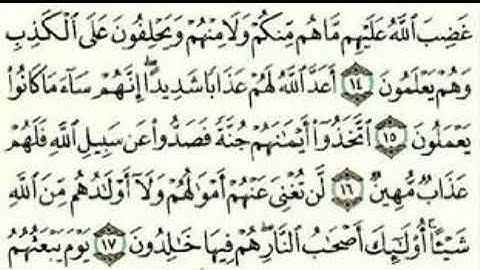 غَضِبَ ٱللَّهُ عَلَيْهِم مَّا هُم مِّنكُمْ وَلَا مِنْهُمْ وَيَحْلِفُونَ عَلَى ٱلْكَذِبِ
وَهُمْ يَعْلَمُونَ ١٤ أَعَدَّ ٱللَّهُ لَهُمْ عَذَابًا شَدِيدًا ۖ إِنَّهُمْ سَآءَ مَا كَانُوا۟
يَعْمَلُونَ ١٥ ٱتَّخَذُوٓا۟ أَيْمَـٰنَهُمْ جُنَّةً فَصَدُّوا۟ عَن سَبِيلِ ٱللَّهِ فَلَهُمْ
عَذَابٌ مُّهِينٌ ١٦ لَّن تُغْنِىَ عَنْهُمْ أَمْوَٰلُهُمْ وَلَآ أَوْلَـٰدُهُم مِّنَ ٱللَّهِ
شَيْـًٔا ۚ أُو۟لَـٰٓئِكَ أَصْحَـٰبُ ٱلنَّارِ ۖ هُمْ فِيهَا خَـٰلِدُونَ ١٧ يَوْمَ يَبْعَثُهُمُ